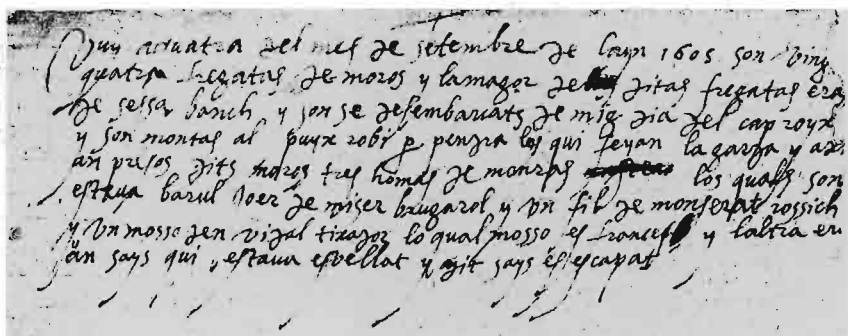 Vuy a quatra del mes de setembre de lany 1605 son ving
quatra fregatas de moros y la magor de ditas fregatas era
de sessa banch y son se desembarcats de mig dia del cap royx
y son montas al puyx robi p pendra los qui feyan la garda y
an presos dits moros tres homas de monras los quals son
estaua barul joer de miser brugarol y vn fil de monserat rossich
y vn mosso den vidal tirador lo qual mosso es frances y laltra era
an says qui estaua esvellat y dit says es escapat